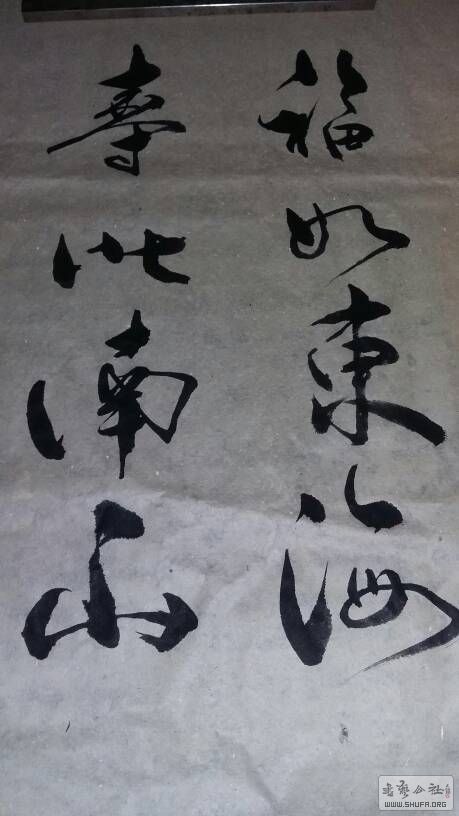 福如東海
寿比南山
书艺公社
WWW.SHUFA.ORG